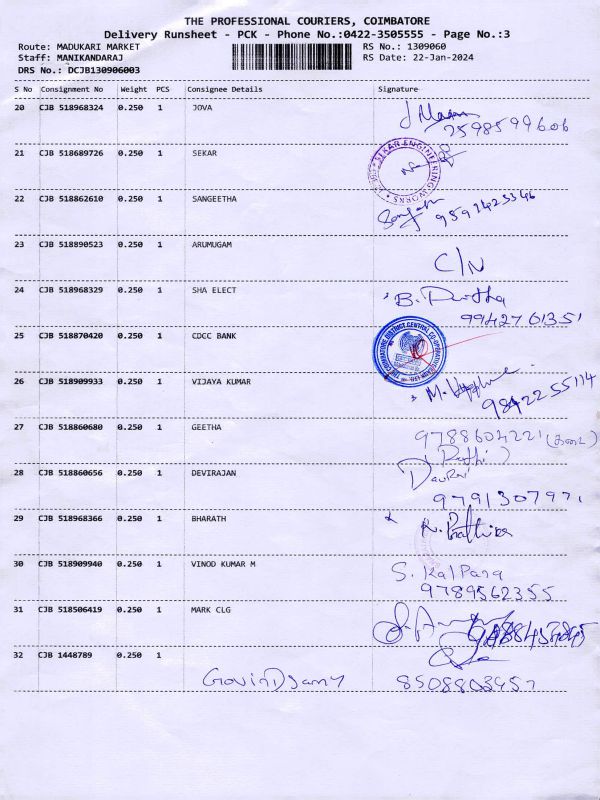 THE PROFESSIONAL COURIERS, COIMBATORE
Delivery Runsheet - PCK - Phone No.:0422-3505555 - Page No.:3
Route: MADUKARI MARKET RS No.: 1309060
Staff: MANIKANDARAJ RS Date: 22-Jan-2024
DRS No.: DCJB130906003
S No Consignment No Weight PCS Consignee Details Signature
20 CJB 518968324 0.250 1 JOVA
7598599606
21 CJB 518689726 0.250 1 SEKAR
SEKAR ENGINEERING WORKS
22 CJB 518862610 0.250 1 SANGEETHA
9597425346
23 CJB 518890523 0.250 1 ARUMUGAM
C/N
24 CJB 518968329 0.250 1 SHA ELECT
B.
9942761351
25 CJB 518870420 0.250 1 CDCC BANK
THE COIMBATORE DISTRICT CENTRAL CO-OPERATIVE BANK
26 CJB 518909933 0.250 1 VIJAYA KUMAR
M.
9842255114
27 CJB 518860680 0.250 1 GEETHA
9788604221
28 CJB 518860656 0.250 1 DEVIRAJAN
29 CJB 518968366 0.250 1 BHARATH
30 CJB 518909940 0.250 1 VINOD KUMAR M
S. Kalpana
9789562355
31 CJB 518506419 0.250 1 MARK CLG
32 CJB 1448789 0.250 1
Govindsamy 8508803957